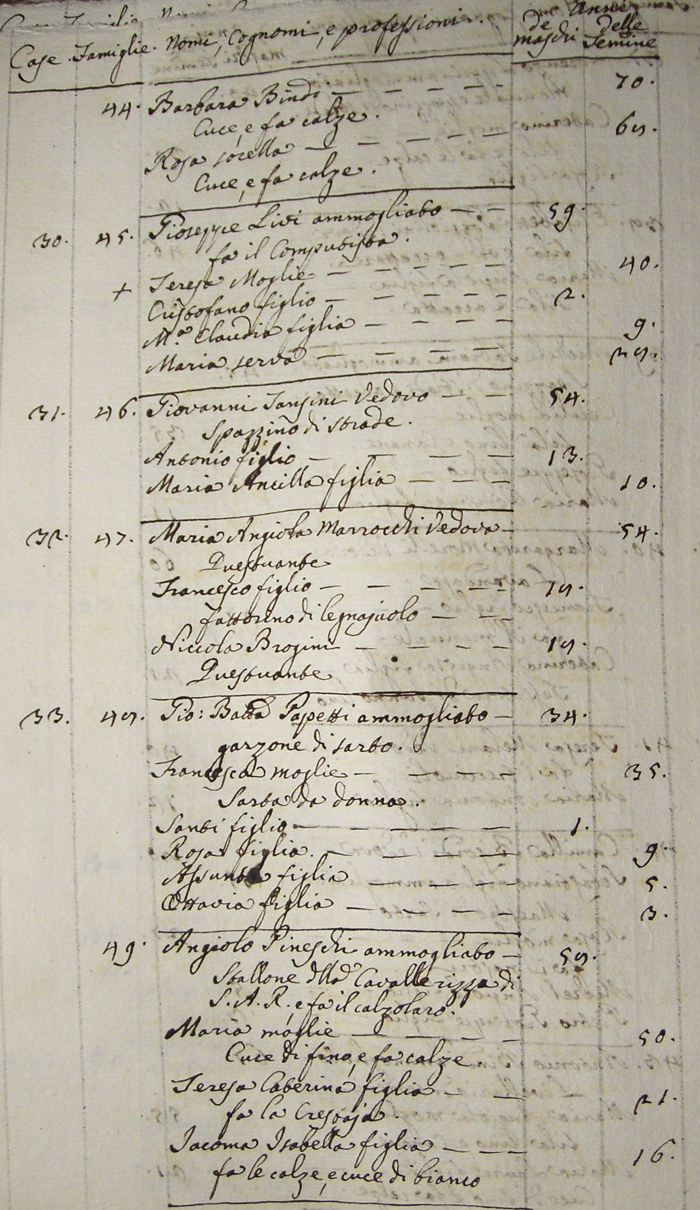 Case Famiglie Nomi, Cognomi, e professioni. de maschi delle Femine
44. Barbara Bindi — — — — 70.
Cuce, e fa calze.
Rosa sorella — — — — 68.
Cuce, e fa calze.
30. 45. Gioseppe Livi ammogliato — — 59.
fa il Computista.
+ Teresa Moglie — — — — 40.
Cristofano figlio — — — — 2.
M.a Claudia figlia — — — — 9.
Maria serva — — — — 28.
31. 46. Giovanni Sansini Vedovo — — 54.
Spazzino di strade.
Antonio figlio — — — — 13.
Maria Ancilla figlia — — — 10.
32. 47. Maria Angiola Marrocchi Vedova — 54.
Questuante
Francesco figlio — — — — 18.
fattorino di legnajuolo — —
Niccola Brogini — — — — 18.
Questuante
33. 48. Gio: Batta Papetti ammogliato — 34.
garzone di sarto.
Francesca moglie — — — — 35.
Sarta da donna.
Santi figlio — — — — 1.
Rosa figlia. — — — — 9.
Assunta figlia — — — — 5.
Ottavia figlia — — — — 3.
49. Angiolo Pineschi ammogliato — 58.
Stallone dlla Cavallerizza di
S. A. R. e fa il calzolaro.
Maria moglie — — — — 50.
Cuce di fino, e fa calze.
Teresa Caterina figlia — — — 21.
fa la Crestaja.
Iacoma Isabella figlia — — — 16.
fa le calze, e cuce di bianco